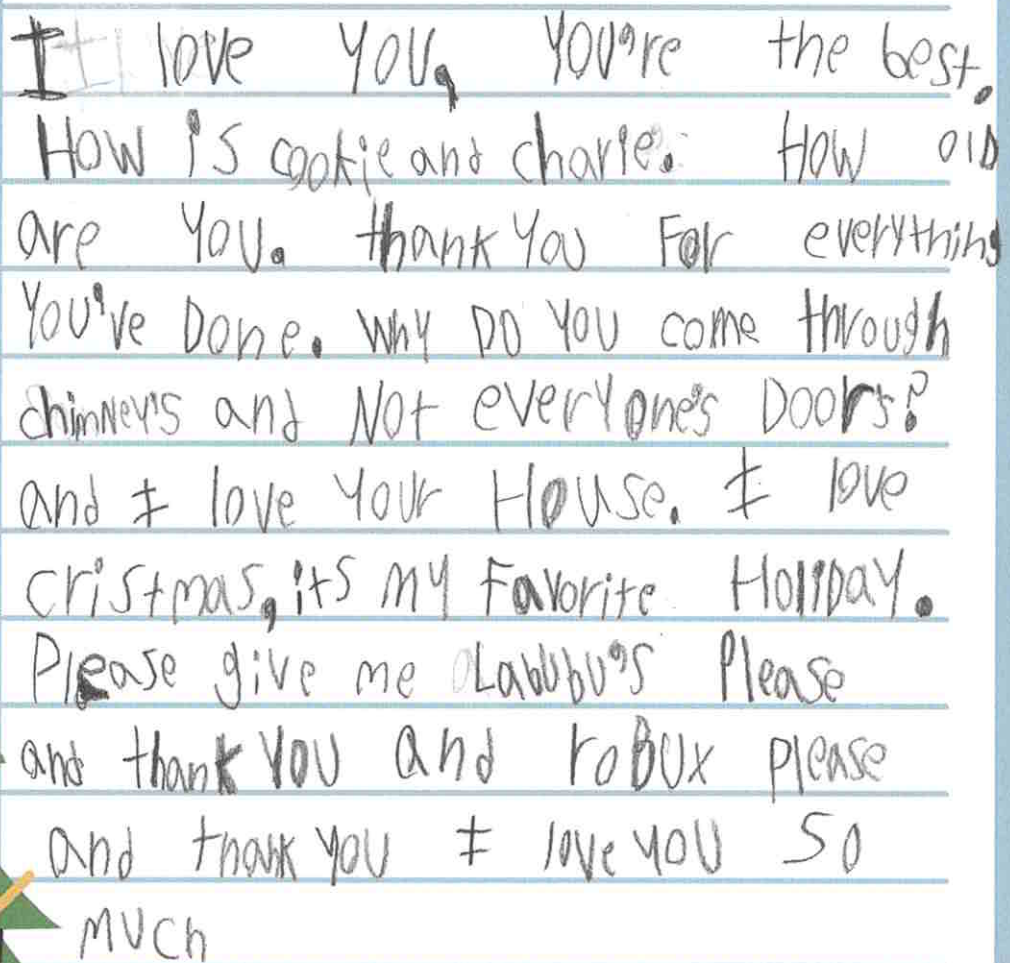 I love you, you're the best.
How is cookie and charlie. How old
are you. thank you For everything
You've Done. Why Do you come through
chimney's and Not everyone's Doors?
and I love your House. I love
cristmas, its my Favorite Holiday.
Please give me Labubu's Please
and thank you and roBux please
and thank you I love you so
much